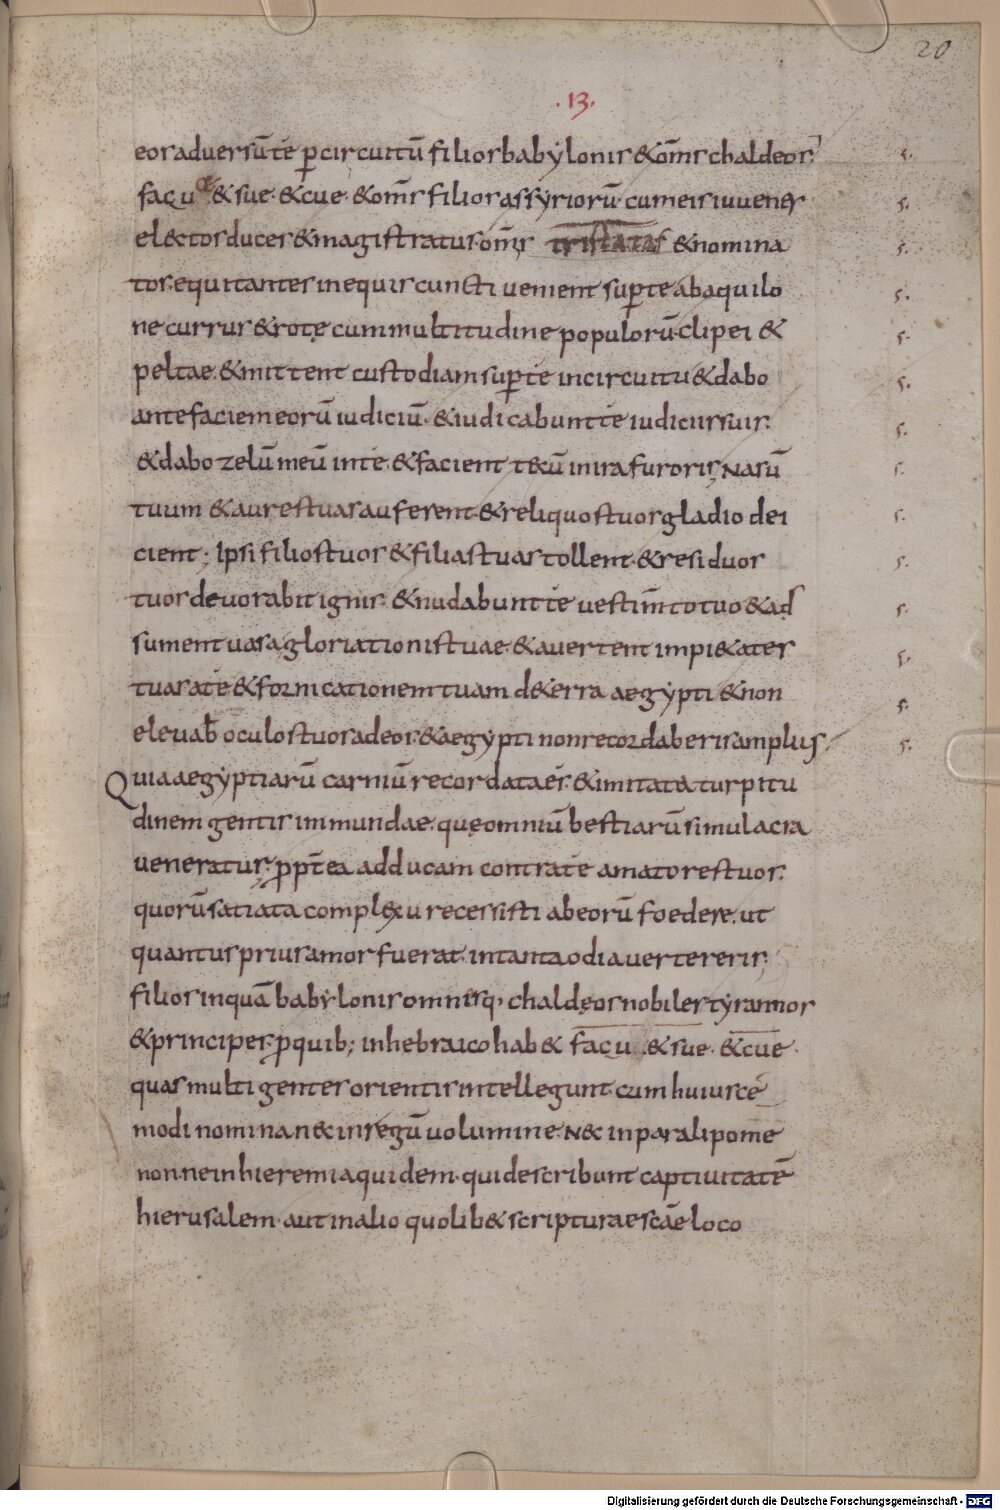 20
.13.
eos adversū te p̱ circuitū filios babẏlonis &om̅s chaldeos
facu& & sue &cue &om̅s filios assẏriorū cum eis iuvenes
el&tos duces & magistratus om̅s tristatas &nomina
tos. equitantes in equis cuncti venient sup̱ te ab aquilo
ne currus & rotę cum multitudine populorū. clipei &
peltae &mittent custodiam sup̱ te in circuitu &dabo
ante faciem eorū iudiciū. &iudicabunt te iudiciis suis.
&dabo zelū meū in te. &facient tecū in ira furoris, Nasū
tuum &aures tuas auferent. &reliquos tuos gladio dei
cient; Ipsi filios tuos &filias tuas tollent. &residuos
tuos devorabit ignis. &nudabunt te vestim̅to tuo &ad
sument vasa gloriationis tuae. &avertent impi&ates
tuas a te &fornicationem tuam de terra aegẏpti &non
elevab̅ oculos tuos ad eos. &aegẏpti non recordaberis amplius.
Quia aegẏptiarū carniū recordata es. &imitata turpitu
dinem gentis immundae. quę omniū bestiarū simulacra
veneratur. ppt̅ea adducam contra te amatores tuos.
quorū satiata complexu recessisti ab eorū foedere. ut
quantus prius amor fuerat. in tanta odia verteretis.
filios inquā babẏlonis omnesq; chaldęos nobiles tẏrannos
&principes. p̱ quib; in hebraico hab& facu. & sue. &cue.
quas multi gentes orientis intellegunt. cum huiusce
modi nomina n& in regū volumine. N& in paralipome
non. ne in hieremia quidem. qui describunt captivitatē
hierusalem. aut in alio quolib& scripturae scāe loco
Digitalisierung gefördert durch die Deutsche Forschungsgemeinschaft - DFG